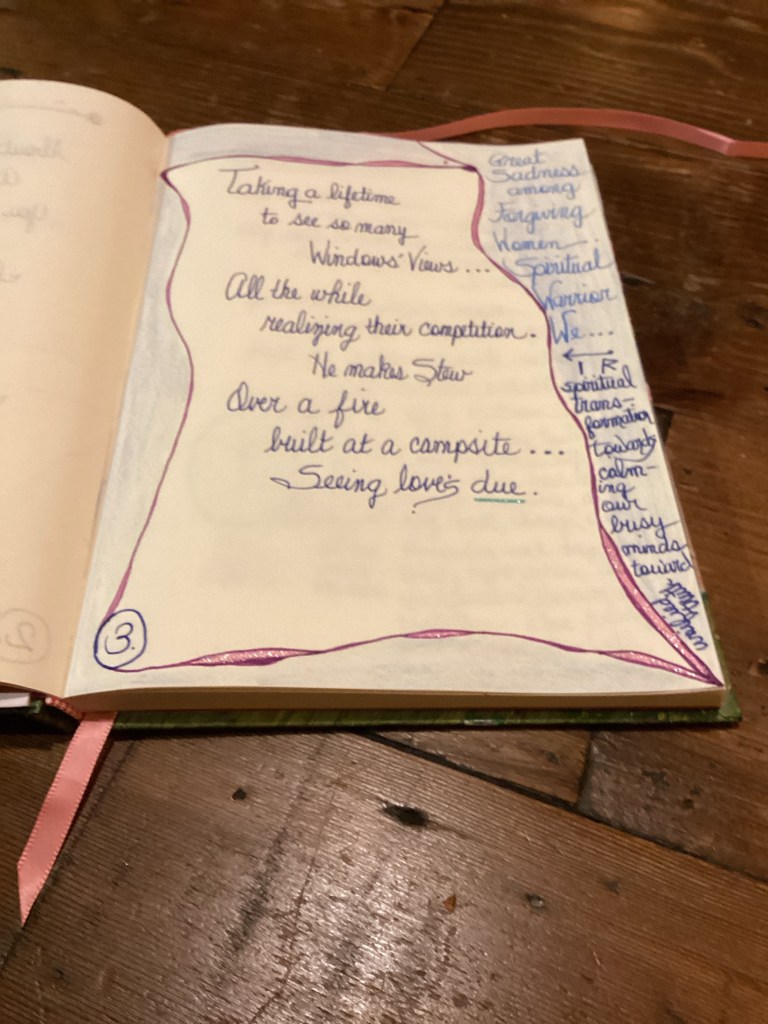 Taking a lifetime
to see so many
Windows' Views ...
All the while
realizing their competition.
He makes Stew
Over a fire
built at a campsite ...
Seeing love's due.
3.
Great
Sadness
among
Forgiving
Women
Spiritual
Warrior
We...
I R
spiritual
trans-
formation
towards
calm-
ing
our
busy
minds
toward
2